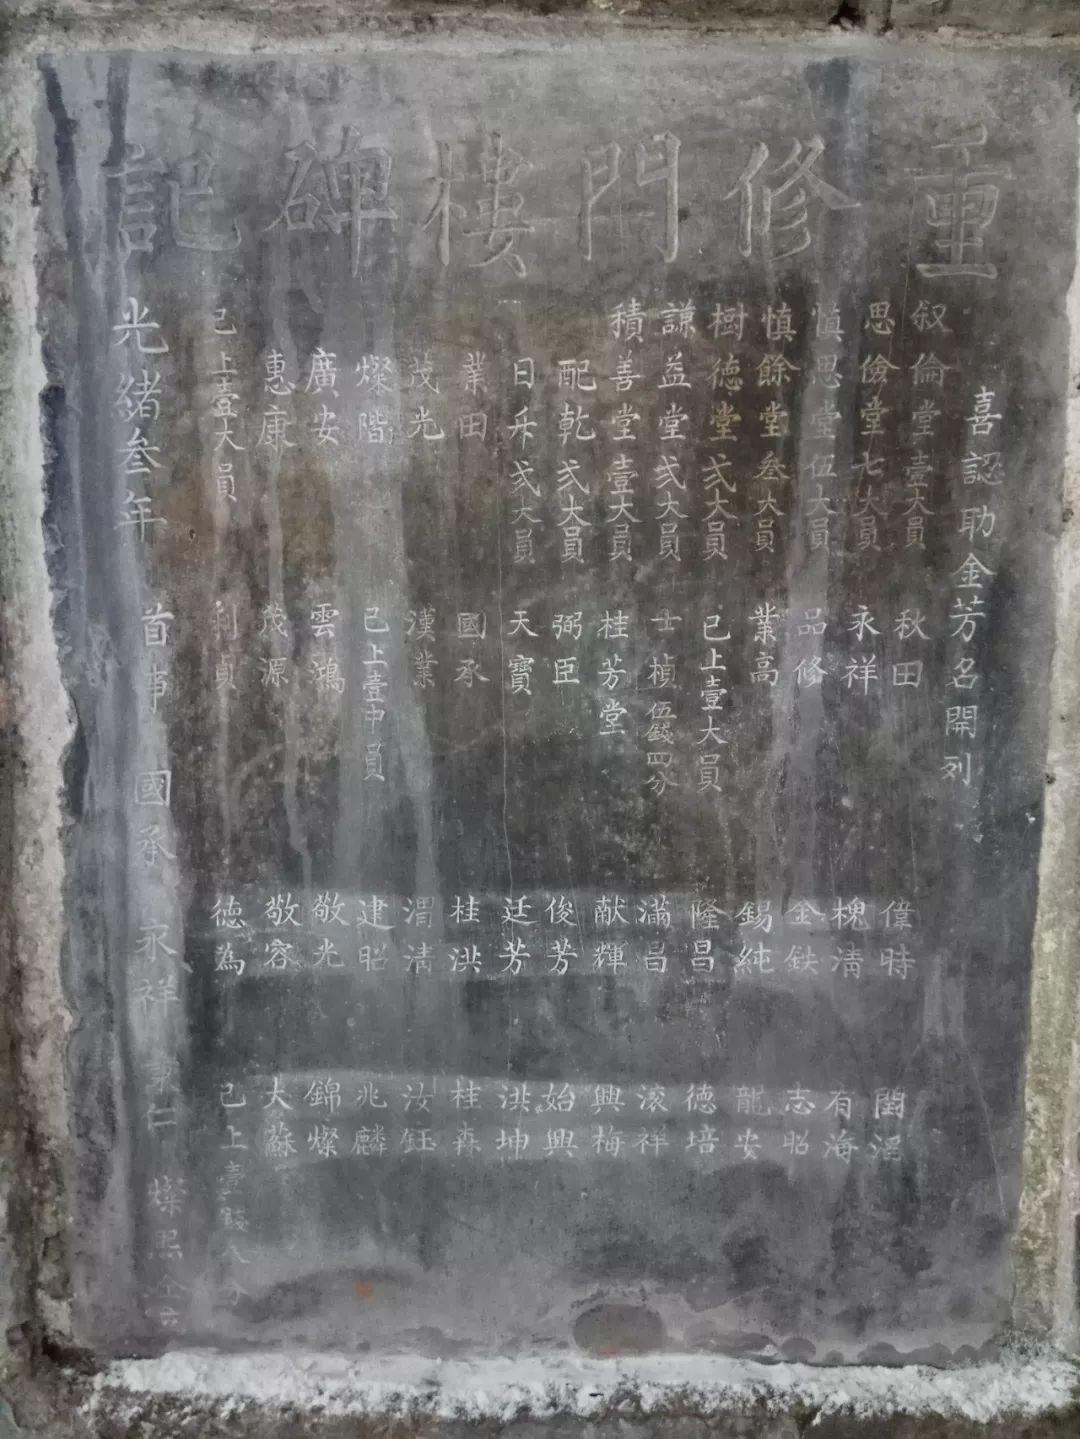 重修門樓碑記
喜認助金芳名開列
叙倫堂壹大員
思儉堂七大員
慎思堂伍大員
慎餘堂叁大員
樹德堂弍大員
謙益堂弍大員
積善堂壹大員
配乾弍大員
日升弍大員
業田
茂光
燦階
廣安
惠康
已上壹大員
秋田
永祥
品修
業高
已上壹大員
士楨伍錢四分
桂芳堂
弼臣
天寶
國承
漢業
已上壹中員
雲鴻
茂源
利貞
偉時
槐清
金鈇
錫純
隆昌
滿昌
献輝
俊芳
廷芳
桂洪
渭清
建昭
敬光
敬容
德為
閏滔
有海
志昭
龍安
德培
滚祥
興梅
始興
洪坤
桂森
汝鈺
兆麟
錦燦
大蘇
已上壹錢八分
光緒叁年 首事 國承 永祥 秉仁 燦熙 仝立